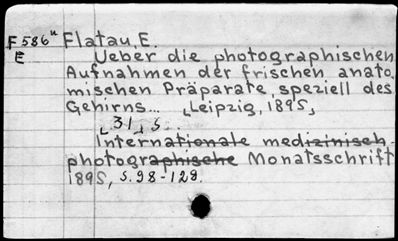 F586u Flatau, E.
E Ueber die photographischen
Aufnahmen der frischen anato
mischen Präparate, speziell des
Gehirns... [Leipzig, 1895]
[31] S.
Internationale medizinisch-
photographische Monatsschrift
1895, S. 98-128.